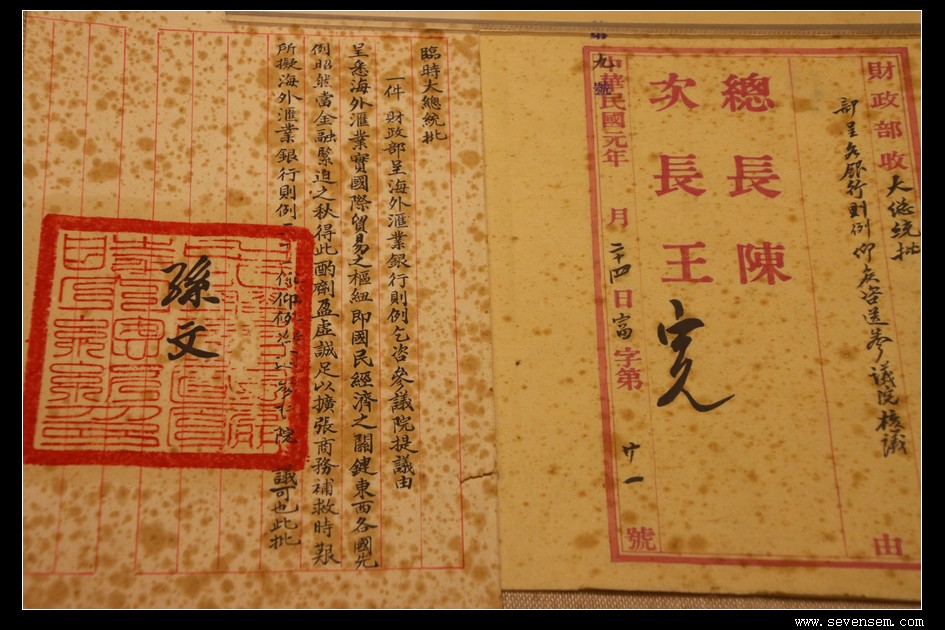 財政部收
大總統批
部呈各銀行則例仰候咨送參議院核議
由
總長陳
次長王
完
中華民國元年 月 二十四日富字第 廿一 號
九號
臨時大總統批
一件 財政部呈海外滙業銀行則例乞咨參議院提議由
呈悉海外滙業實國際貿易之樞紐即國民經濟之關鍵東西各國先
例昭然當金融緊迫之秋得此酌劑盈虛誠足以擴張商務補救時艱
所擬海外滙業銀行則例 仰候 院 議可也此批
孫文
www.sevensem.com